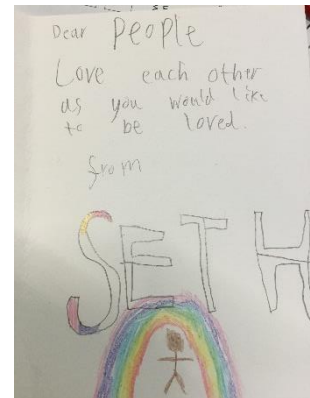 Dear People
Love each other
as you would like
to be loved.
from
SETH